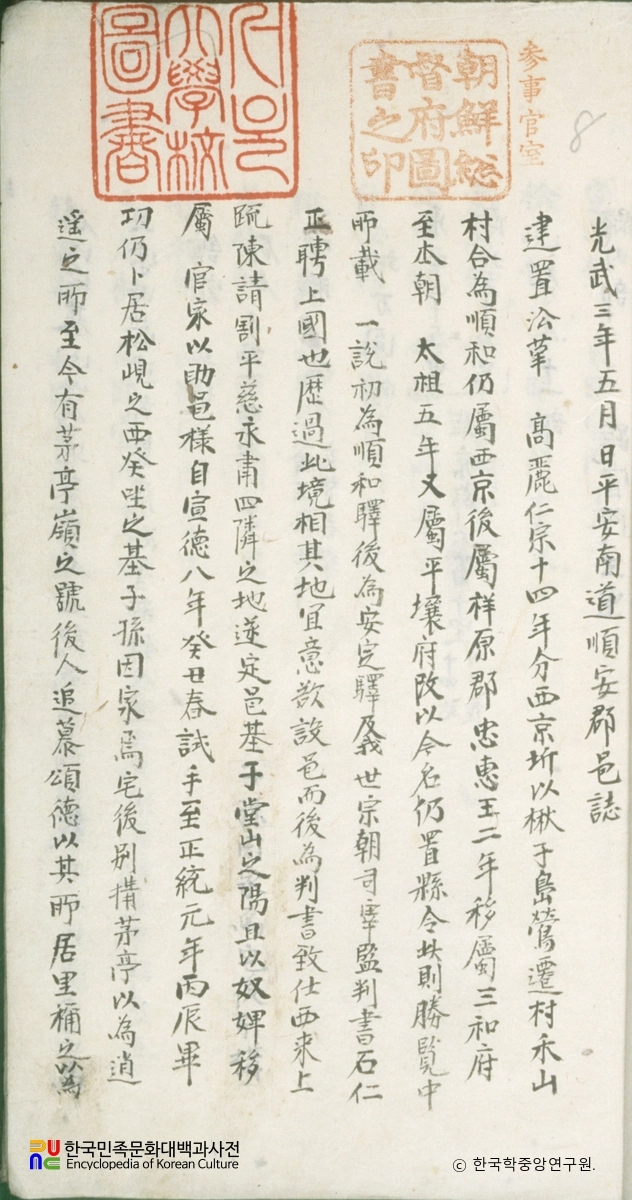 參事官室
8
朝鮮總
督府圖
書之印
大學校
圖書
光武三年五月 日平安南道順安郡邑誌
建置沿革 高麗仁宗十四年分西京圻以楸子島鶯遷村禾山
村合為順和仍屬西京後屬祥原郡忠惠王二年移屬三和府
至本朝 太祖五年又屬平壤府改以今名仍置縣令此則勝覽中
所載 一說初為順和驛後為安定驛及我 世宗朝司宰監判書石仁
正聘上國也歷過此境相其地宜意欲設邑而後為判書致仕西來上
疏陳請割平慈永肅四隣之地遂定邑基于堂山之陽且以奴婢移
屬 官家以助邑樣自宣德八年癸丑春試手至正統元年丙辰畢
功仍卜居松峴之西癸坐之基子孫因家焉宅後別搆茅亭以為逍
遙之所至今有茅亭嶺之號後人追慕頌德以其所居里稱之以為
한국민족문화대백과사전
Encyclopedia of Korean Culture
ⓒ 한국학중앙연구원.